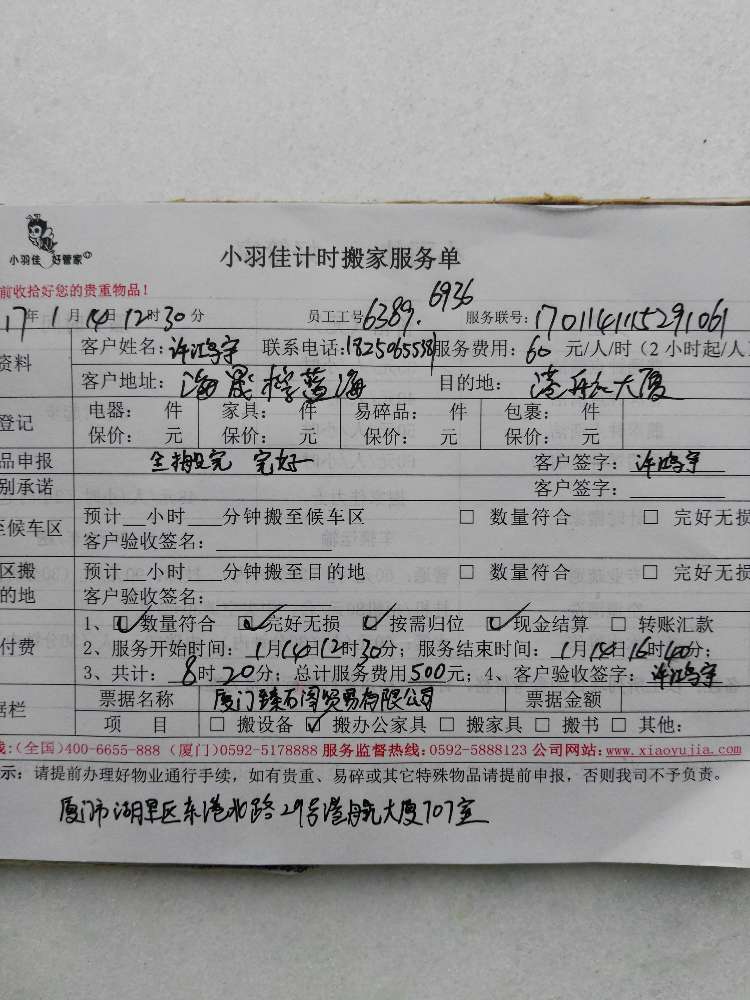 小羽佳 好管家
小羽佳计时搬家服务单
前收拾好您的贵重物品!
17年1月14日12时30分 员工工号6389.6936 服务联号:170114115291061
资料 客户姓名:许鸿宇 联系电话:18250655381 服务费用:60元/人/时(2小时起/人
客户地址: 海晟 蓝海 目的地:港航大厦
登记 电器: 件 家具: 件 易碎品: 件 包裹: 件
保价: 元 保价: 元 保价: 元 保价: 元
品申报 全搬完 完好 客户签字:许鸿宇
别承诺 客户签字:
至候车区 预计__小时___分钟搬至候车区 □ 数量符合 □ 完好无损
客户验收签名:
区搬 预计__小时___分钟搬至目的地 □ 数量符合 □ 完好无损
的地 客户验收签名:
付费 1、☑数量符合 ☑完好无损 ☑按需归位 ☑现金结算 □ 转账汇款
2、服务开始时间:1月14日12时30分;服务结束时间:1月14日16时40分;
3、共计:8时20分;总计服务费用500元;4、客户验收签字:许鸿宇
据栏 票据名称 厦门臻石阁贸易有限公司 票据金额
项 目 □ 搬设备 ☑ 搬办公家具 □ 搬家具 □ 搬书 □ 其他:
线:(全国)400-6655-888 (厦门)0592-5178888 服务监督热线:0592-5888123 公司网站:www.xiaoyujia.com
示:请提前办理好物业通行手续,如有贵重、易碎或其它特殊物品请提前申报,否则我司不予负责。
厦门市湖里区东港北路29号港航大厦707室